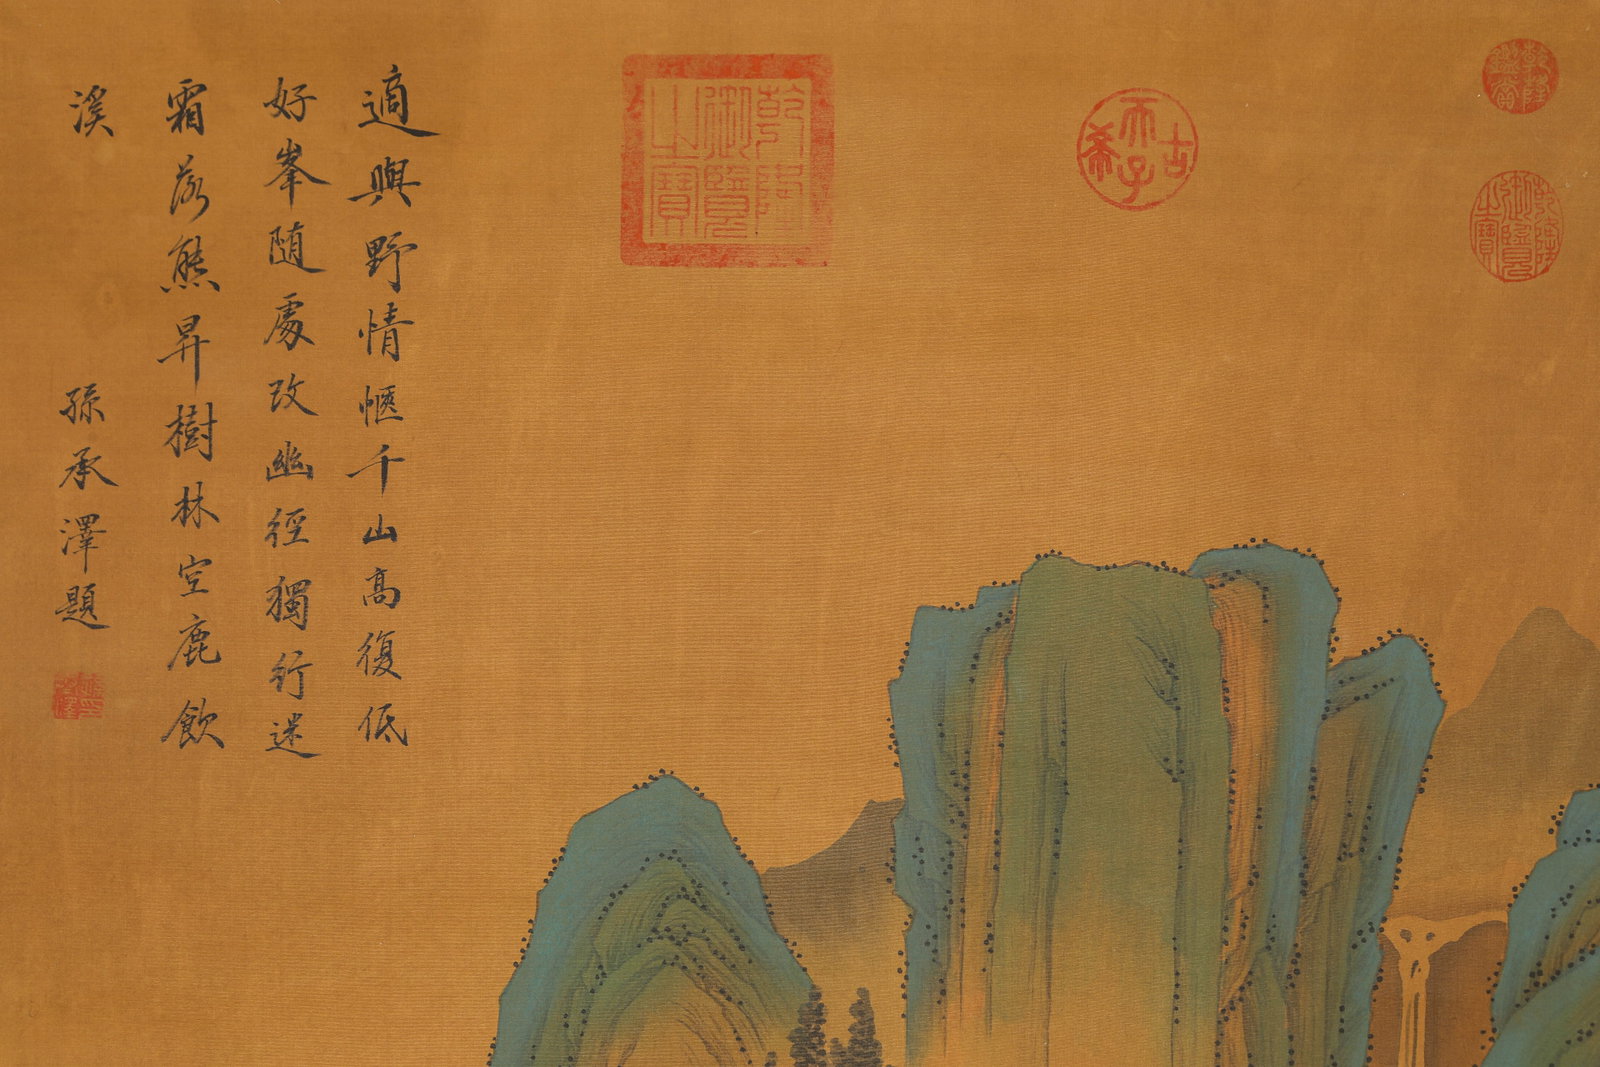 乾隆鑑賞
乾隆御覽之寶
古希天子
乾隆御覽之寶
適與野情愜千山高復低
好峯随處改幽徑獨行迷
霜落熊昇樹林空鹿飲
溪
孫承澤題